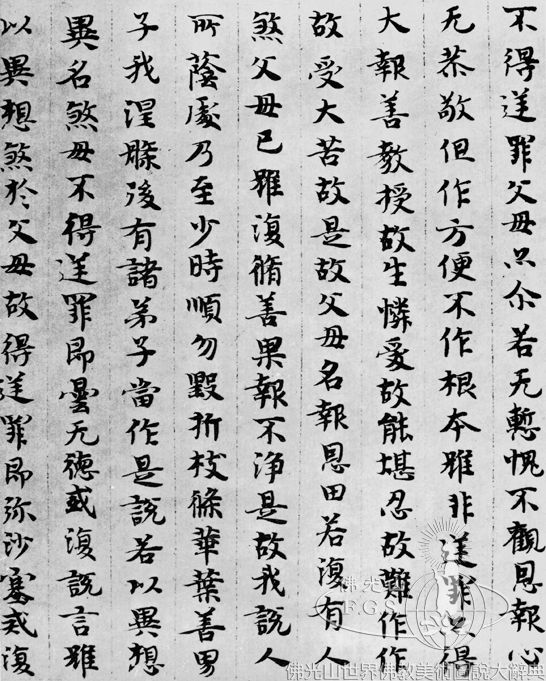 不得逆罪父母亦尒若无慙愧不觀恩報心
无恭敬但作方便不作根本雖非逆罪亦得
大報善教授故生憐愛故能堪忍故難作作
故受大苦故是故父母名報恩田若復有人
煞父母已雖復脩善果報不淨是故我說人
所蔭處乃至少時順勿毀折枝條華葉善男
子我涅槃後有諸弟子當作是說若以異想
異名煞母不得逆罪即曇无德或復說言雖
以異想煞於父母故得逆罪即弥沙塞或復
佛光山
F.G.S
佛光山世界佛教美術圖說大辭典